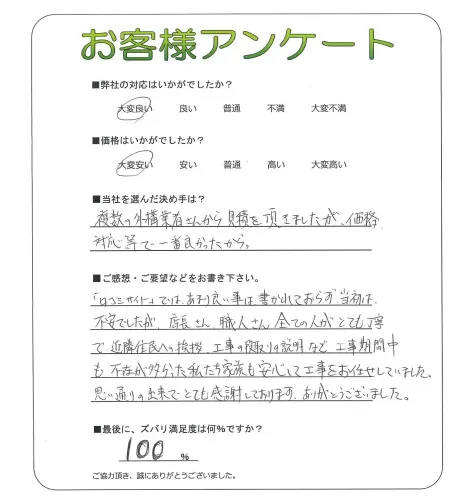 お客様アンケート
■弊社の対応はいかがでしたか?
大変良い 良い 普通 不満 大変不満
■価格はいかがでしたか?
大変安い 安い 普通 高い 大変高い
■当社を選んだ決め手は?
複数の外構業者さんから見積を頂きましたが、価格
対応等で一番良かったから。
■ご感想・ご要望などをお書き下さい。
「口コミサイト」では、あまり良い事は書かれておらず、当初は、
不安でしたが、店長さん、職人さん、全ての人がとても丁寧
で、近隣住民への挨拶、工事の段取りの説明など、工事期間中
も不在が多かった私たち家族も安心して工事をお任せしていました。
思い通りの出来でとても感謝しております。ありがとうございました。
■最後に、ズバリ満足度は何%ですか?
100 %
ご協力頂き、誠にありがとうございました。